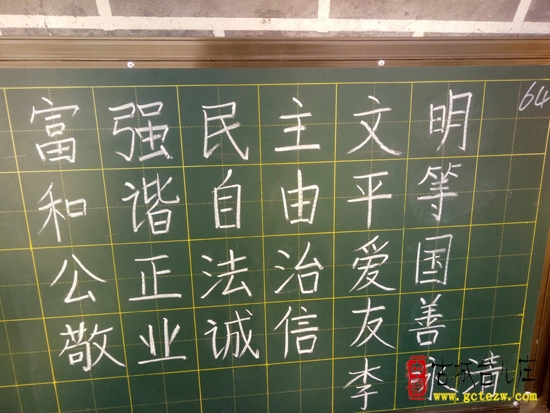 64
富强民主文明
和谐自由平等
公正法治爱国
敬业诚信友善
李
www.gctezw.com